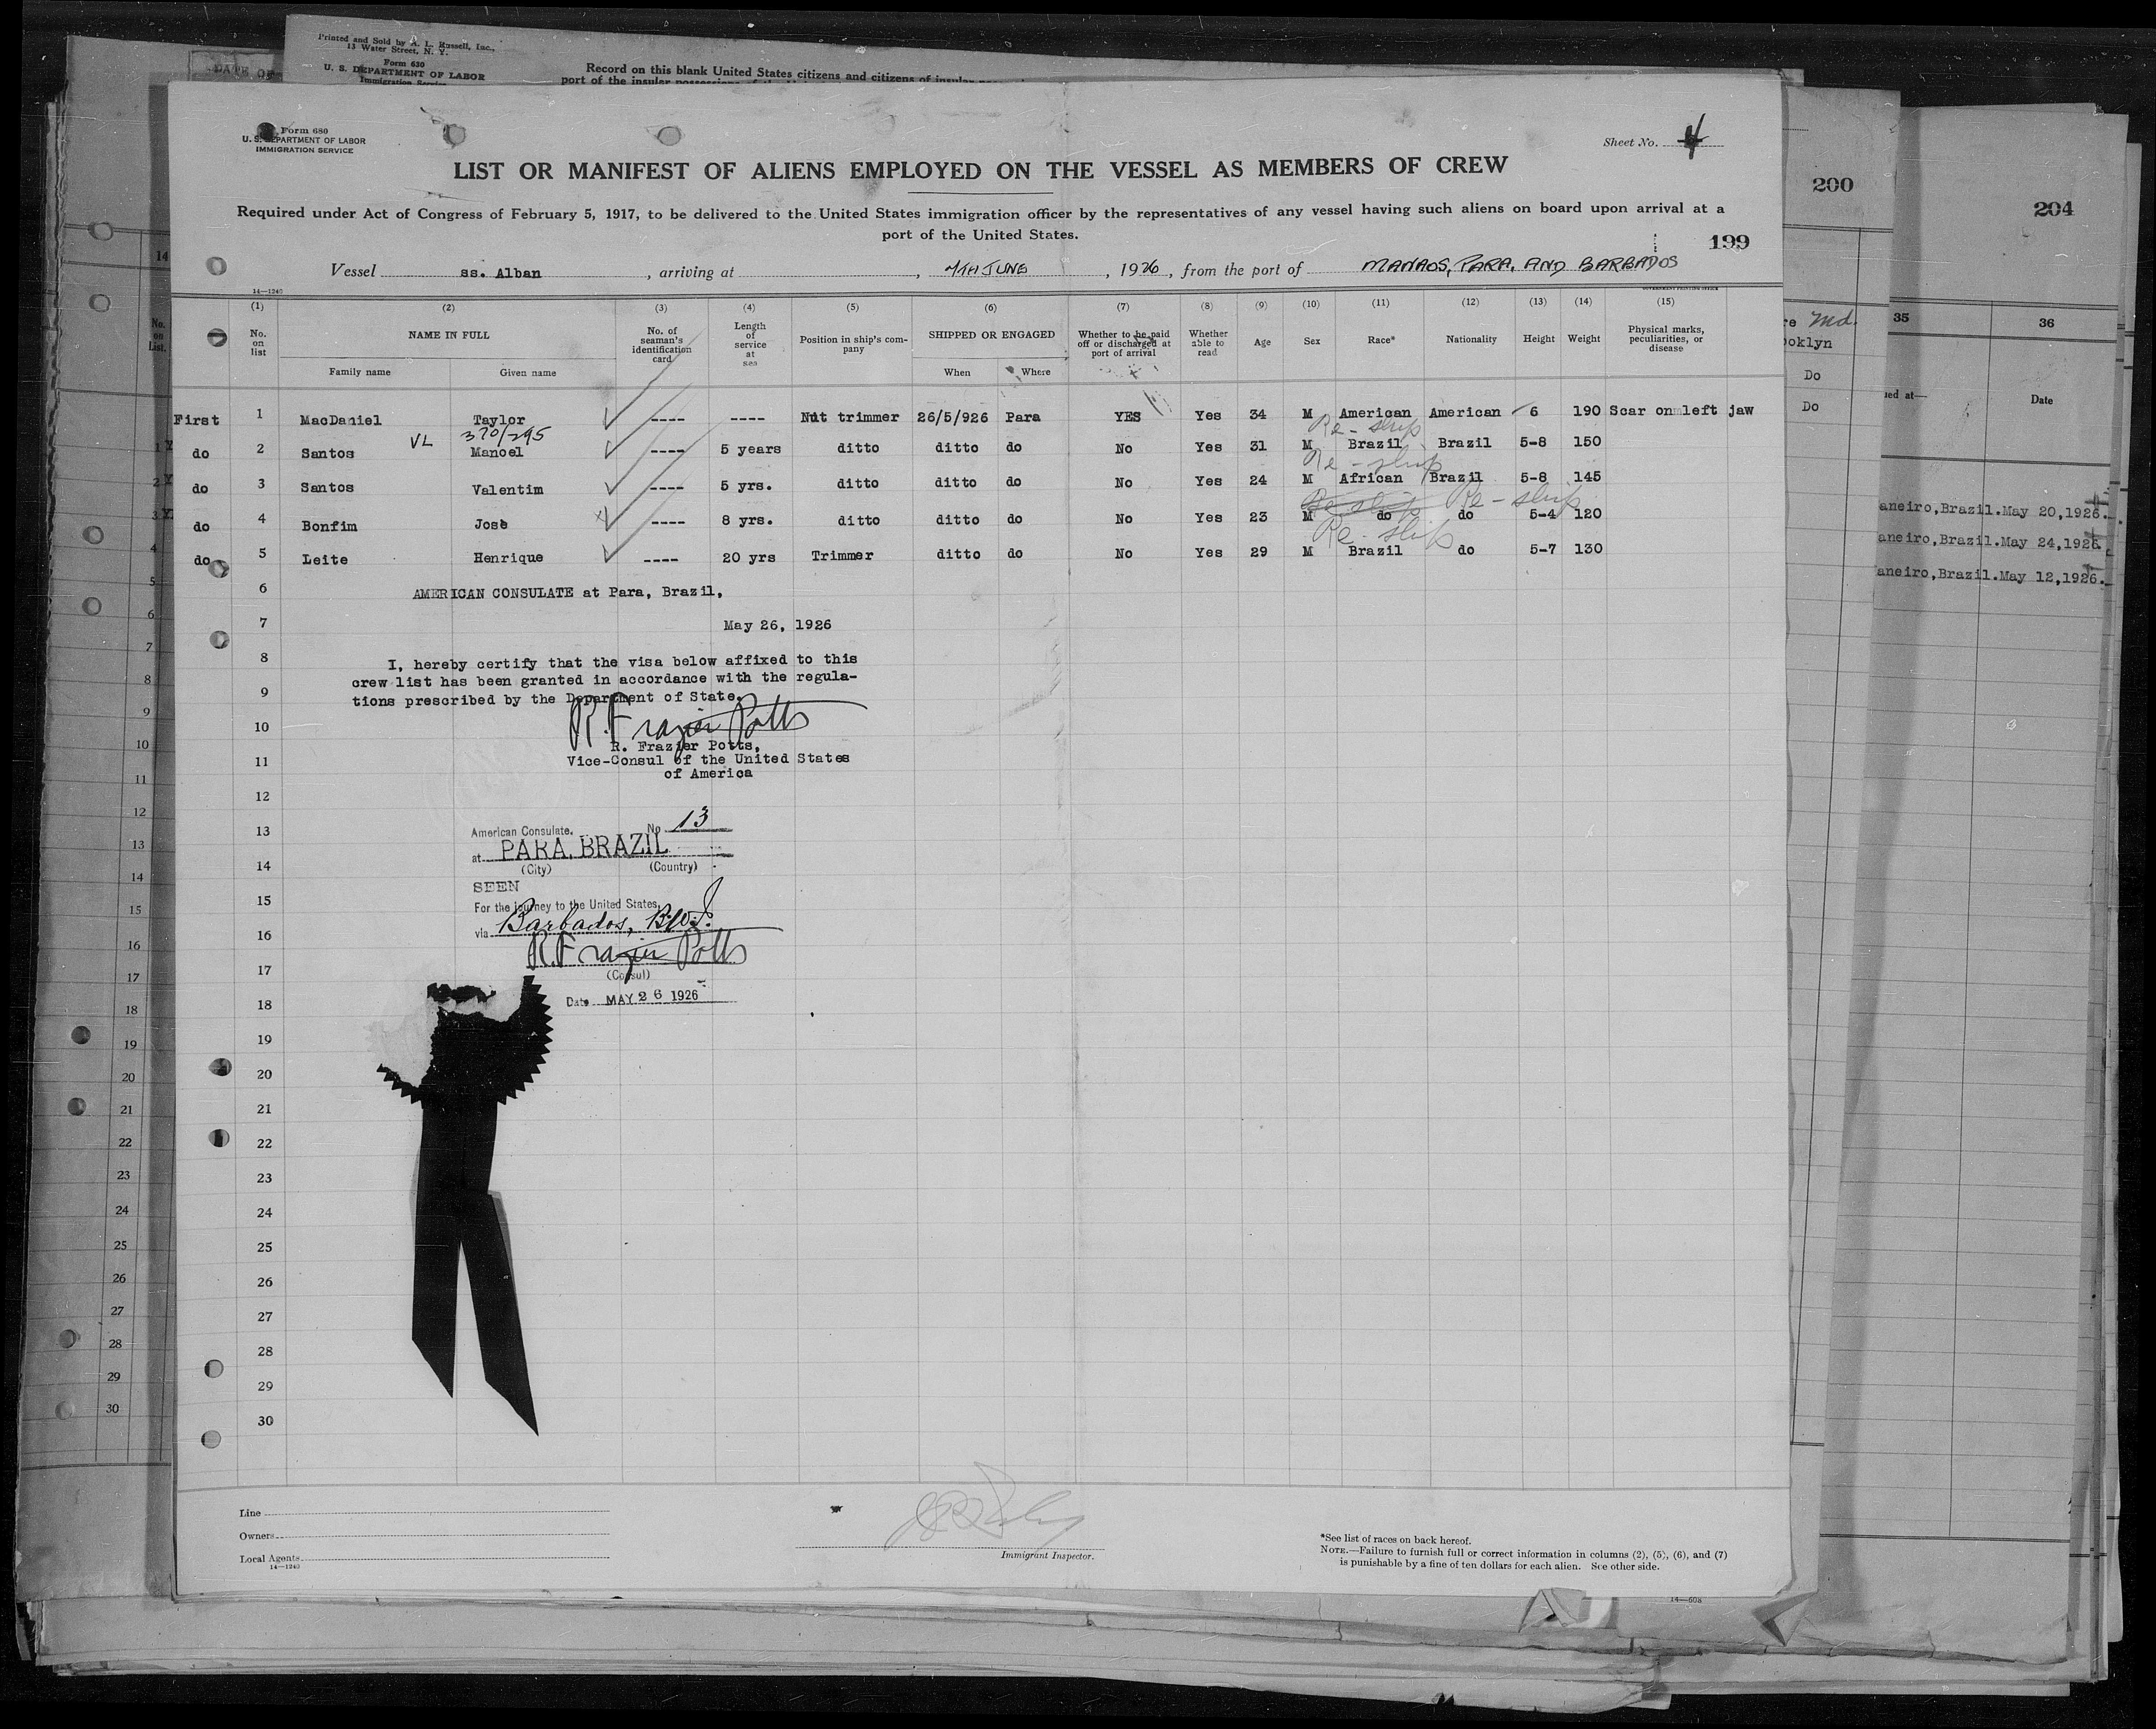 Printed and Sold by A. L. Russell, Inc.,
13 Water Street, N. Y.
Form 630
U. S. DEPARTMENT OF LABOR
Immigration Service
Record on this blank United States citizens and citizens of insular
port of the insular possessions
Form 680
U. S. DEPARTMENT OF LABOR
IMMIGRATION SERVICE
Sheet No. 4
LIST OR MANIFEST OF ALIENS EMPLOYED ON THE VESSEL AS MEMBERS OF CREW
Required under Act of Congress of February 5, 1917, to be delivered to the United States immigration officer by the representatives of any vessel having such aliens on board upon arrival at a
port of the United States.
199
200
204
Vessel ss. Alban, arriving at , 7TH JUNE, 1926, from the port of MANAOS, PARA, AND BARBADOS
14—1240
(1) (2) (3) (4) (5) (6) (7) (8) (9) (10) (11) (12) (13) (14) (15)
No. on list
NAME IN FULL
Family name Given name
No. of seaman's identification card
Length of service at sea
Position in ship's company
SHIPPED OR ENGAGED
When Where
Whether to be paid off or discharged at port of arrival
Whether able to read
Age Sex Race* Nationality Height Weight
Physical marks, peculiarities, or disease
First 1 MacDaniel Taylor ---- ---- Nut trimmer 26/5/926 Para YES Yes 34 M American American 6 190 Scar on left jaw
VL 370/295 Re-ship
do 2 Santos Manoel ---- 5 years ditto ditto do No Yes 31 M Brazil Brazil 5-8 150
Re-ship
do 3 Santos Valentim ---- 5 yrs. ditto ditto do No Yes 24 M African Brazil 5-8 145
Re-ship Re-ship
do 4 Bonfim José ---- 8 yrs. ditto ditto do No Yes 23 M do do 5-4 120
Re-ship
do 5 Leite Henrique ---- 20 yrs Trimmer ditto do No Yes 29 M Brazil do 5-7 130
6 AMERICAN CONSULATE at Para, Brazil,
7 May 26, 1926
8 I, hereby certify that the visa below affixed to this
crew list has been granted in accordance with the regula-
9 tions prescribed by the Department of State.
10 R. Frazier Potts
R. Frazier Potts,
11 Vice-Consul of the United States
of America
12
13 American Consulate. No 13
at PARA, BRAZIL
14 (City) (Country)
SEEN
15 For the journey to the United States,
16 via Barbados, B.W.I.
R. Frazier Potts
17 (Consul)
18 Date MAY 26 1926
19
20
21
22
23
24
25
26
27
28
29
30
Line
Owners
Local Agents
14—1240
Immigrant Inspector.
*See list of races on back hereof.
NOTE.—Failure to furnish full or correct information in columns (2), (5), (6), and (7)
is punishable by a fine of ten dollars for each alien. See other side.
14—608
Md.
ooklyn
Do
Do
35 36
ied at— Date
aneiro, Brazil. May 20, 1926.
aneiro, Brazil. May 24, 1926.
aneiro, Brazil. May 12, 1926.